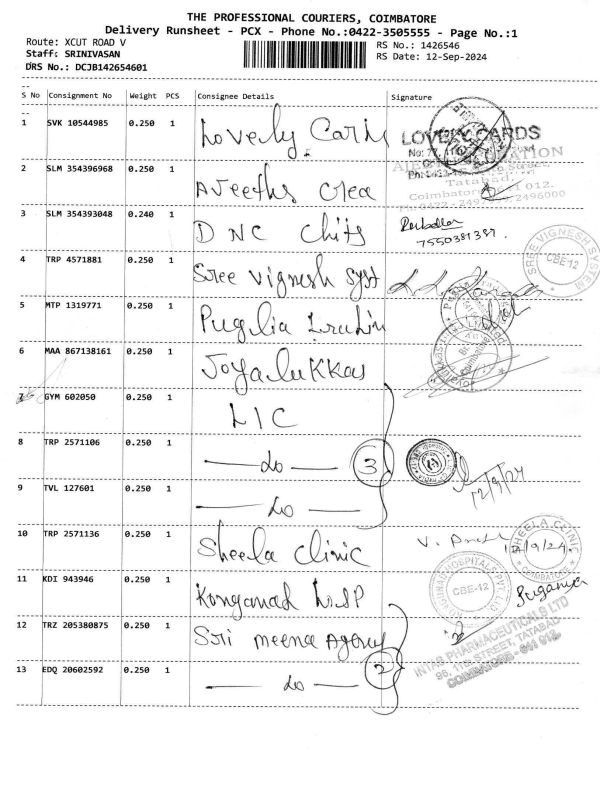 THE PROFESSIONAL COURIERS, COIMBATORE
Delivery Runsheet - PCX - Phone No.:0422-3505555 - Page No.:1
Route: XCUT ROAD V
Staff: SRINIVASAN
DRS No.: DCJB142654601
RS No.: 1426546
RS Date: 12-Sep-2024
S No Consignment No Weight PCS Consignee Details Signature
1 SVK 10544985 0.250 1 Lovely Cards
LOVELY CARDS
2 SLM 354396968 0.250 1
Tatabad
Coimbatore 012.
2496000
3 SLM 354393048 0.240 1 DNC Chits
7550381389.
4 TRP 4571881 0.250 1 Sree Vignesh Syst
SREE VIGNESH SYSTEM
CBE-12
5 MTP 1319771 0.250 1
6 MAA 867138161 0.250 1 Joyalukkas
7 GYM 602050 0.250 1 LIC
8 TRP 2571106 0.250 1 — do — 3
12/9/24
9 TVL 127601 0.250 1 — do —
10 TRP 2571136 0.250 1 Sheela Clinic
12/9/24
SHEELA CLINIC
COIMBATORE
11 KDI 943946 0.250 1
HOSPITALS PVT. LTD
CBE-12
Suganya
12 TRZ 205380875 0.250 1 Sri meena Agency
INTAS PHARMACEUTICALS LTD
96, 11th STREET, TATABAD
COIMBATORE - 641 012.
13 EDQ 20602592 0.250 1 — do — 2